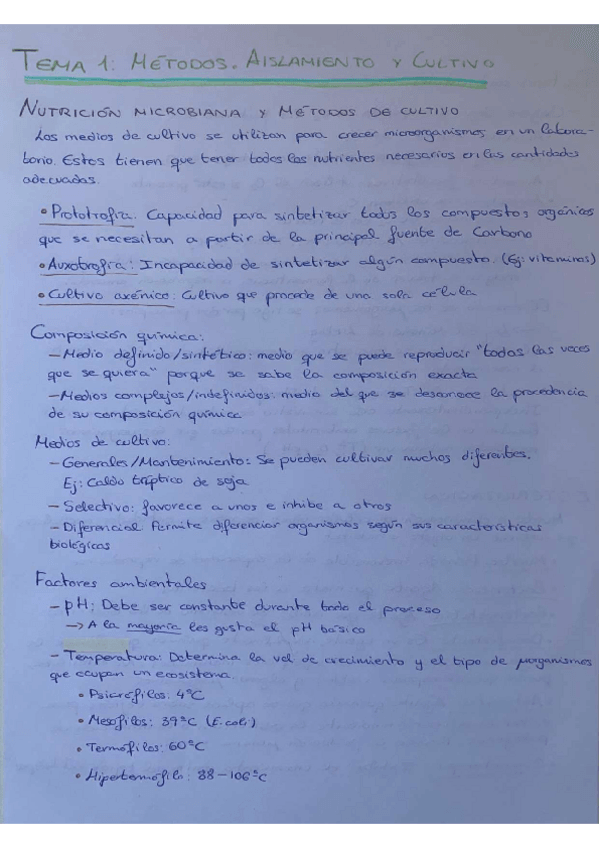 TEMA 1: MÉTODOS. AISLAMIENTO Y CULTIVO
NUTRICIÓN MICROBIANA Y MÉTODOS DE CULTIVO
Los medios de cultivo se utilizan para crecer microorganismos, en un labora-
torio. Estos tienen que tener todos los nutrientes necesarios en las cantidades
adecuadas.
• Prototrofia: Capacidad para sintetizar todos los compuestos orgánicos
que se necesitan a partir de la principal fuente de Carbono
• Auxotrofia: Incapacidad de sintetizar algún compuesto. (Ej: vitaminas)
• Cultivo axénico: Cultivo que procede de una sola célula
Composición química:
- Medio definido/sintético: medio que se puede reproducir "todas las veces
que se quiera" porque se sabe la composición exacta
- Medios complejos/indefinidos: medio del que se desconoce la procedencia
de su composición química
Medios de cultivo:
- Generales/Mantenimiento: Se pueden cultivar muchos diferentes.
Ej: Caldo tríptico de soja
- Selectivo: favorece a unos e inhibe a otros
- Diferencial Permite diferenciar organismos según sus características
biológicas
Factores ambientales
- pH: Debe ser constante durante todo el proceso
-> A la mayoría les gusta el pH básico
- Temperatura: Determina la vel de crecimiento y el tipo de μorganismos
que ocupan un ecosistema.
• Psicrófilos: 4°C
• Mesófilos: 39°C (E.coli)
• Termófilos: 60°C
• Hipertermófilo: 88-106°C